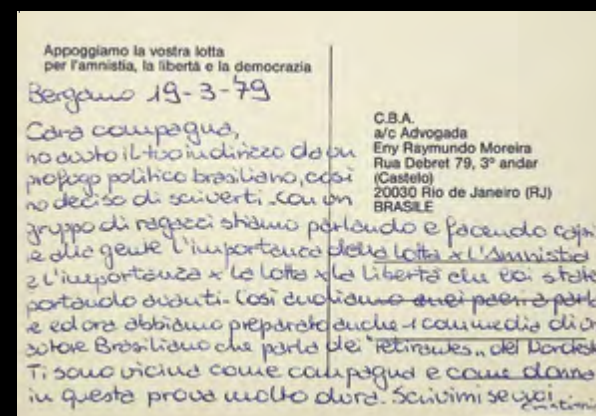 Appoggiamo la vostra lotta
per l'amnistia, la libertà e la democrazia
Bergamo 19-3-79
C.B.A.
a/c Advogada
Eny Raymundo Moreira
Rua Debret 79, 3º andar
(Castelo)
20030 Rio de Janeiro (RJ)
BRASILE
Cara compagna,
ho avuto il tuo indirizzo da un
profugo politico brasiliano, così
ho deciso di scriverti. Con un
gruppo di ragazzi stiamo parlando e facendo capi
re alla gente l'importanza della lotta x l'Amnistia
e l'importanza x la lotta x la libertà che voi state
portando avanti. Così andiamo nei paesi a parla
re ed ora abbiamo preparato anche 1 commedia di un
autore Brasiliano che parla dei "retirantes" del Nordest
Ti sono vicina come compagna e come donna
in questa prova molto dura. Scrivimi se vuoi